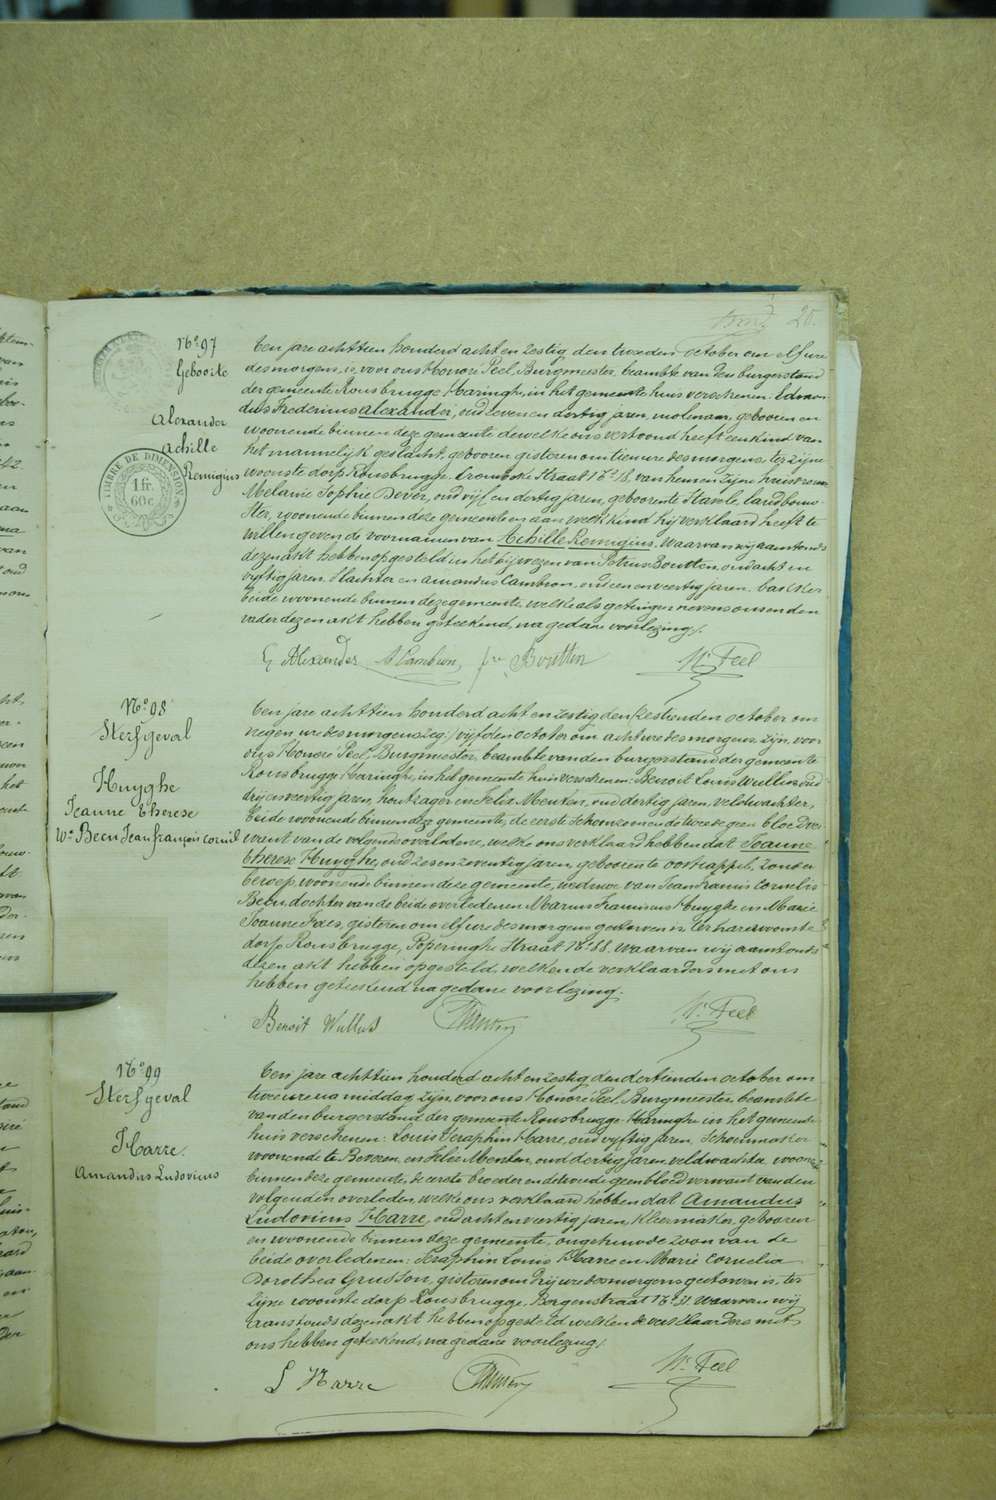 20.
N.º 97
Geboorte
Alexander
Achille
Remigius
TIMBRE DE DIMENSION
1 fr
60c
Ten jare achttien honderd acht en zestig den tweeden october om elf ure
des morgens, is voor ons Honoré Peel, Burgmeester, beambte van den burgerstand
der gemeente Rousbrugge-Haringhe, in het gemeente huis verschenen: Edmon-
dus Frederinus Alexander, oud zeven en dertig jaren, molenaar, gebooren en
woonende binnen deze gemeente dewelke ons vertoond heeft een kind van
het mannelijk geslacht, gebooren gisteren om tien ure des morgens, ter zijne
woonste dorp Rousbrugge, Crombeke Straat N.º 18, van hem en zijne huisvrouw
Melanie Sophie Dever, oud vijf en dertig jaren, geboren te Stavele, landbouw-
ster, woonende binnen deze gemeente en aan welk kind hij verklaard heeft te
willen geven de voornamen van Achille Remigius. Waarvan wij aanstonds
dezen akt hebben opgesteld in het bijwezen van Petrus Boutten, oud acht en
vyftig jaren, Slachter en Amandus Cambron, oud een en veertig jaren, bakker
beide woonende binnen deze gemeente, welke als getuigen nevens ons en den
vader dezen akt hebben geteekend, na gedane voorlezing.
E Alexander A Cambron, Boutten H. Peel
N.º 98
Sterfgeval
Huyghe
Jeanne Therese
We Been Jean françois cornil
Ten jare achttien honderd acht en zestig den zestienden october om
negen ure des morgens, zeg: vijfden october om acht ure des morgens, zijn, voor
ons Honoré Peel, Burgmeester, beambte van den burgerstand der gemeente
Rousbrugge-Haringhe, in het gemeente huis verschenen: Benoit Louis Wullus, oud
drij en veertig jaren, houtzager en Felix Menten, oud dertig jaren, veldwachter,
beide woonende binnen deze gemeente, de eerste schoonzoon en de tweede geen bloedver-
want van de volgende overledene, welke ons verklaard hebben dat Jeanne
Therese Huyghe, oud zes en zeventig jaren, geboren te oostcappel, zonder
beroep, woonende binnen deze gemeente, weduwe van Jean Francois Cornelis
Been, dochter van de beide overledenen Marinus Franciscus Huyghe en Marie
Jeanne Faes, gisteren om elf ure des morgens gestorven is, ter hare woonste
dorp Rousbrugge, Poperinghe Straat N.º 88. Waarvan wij aanstonds
dezen akt hebben opgesteld, welken de verklaarders met ons
hebben geteekend na gedane voorlezing.
Benoit Wullus FMenten H. Peel
N.º 99
Sterfgeval
Harre.
Amandus Ludovicus
Ten jare achttien honderd acht en zestig, den dertienden october om
twee ure na middag, zijn, voor ons Honoré Peel, Burgmeester, beambte
van den burgerstand der gemeente Rousbrugge-Haringhe in het gemeente
huis verschenen: Louis Seraphin Harre, oud vyftig jaren, schoenmaker
woonende te Beveren, en Felix Menten, oud dertig jaren, veldwachter, woonende
binnen deze gemeente, de eerste broeder en de tweede geen bloedverwant van den
volgenden overleden, welke ons verklaard hebben dat Amandus
Ludovicus Harre, oud acht en veertig jaren, kleermaker, gebooren
en woonende binnen deze gemeente, ongehuwde zoon van de
beide overledenen: Seraphin Louis Harre en Marie Cornelia
Dorothea Grusson, gisteren om drij ure des morgens gestorven is, ter
zijne woonste dorp Rousbrugge, Bergenstraat N.º 31 Waarvan wij
aanstonds dezen akt hebben opgesteld welken de verklaarders met
ons hebben geteekend, na gedane voorlezing.
L Harre FMenten H. Peel